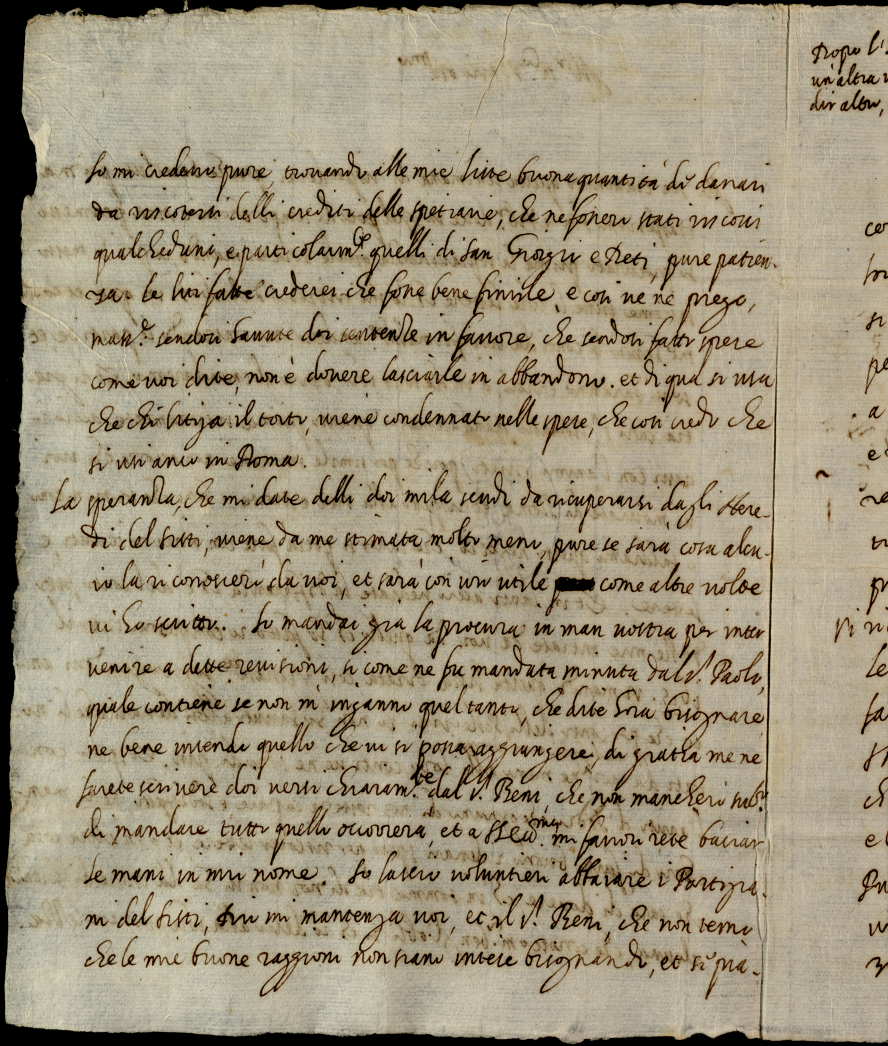 Io mi credevo pure, trovando alle mie liste buona quantità di danari
da riscotersi delli crediti delle spetiarie, che ne fossero stati riscossi
qualcheduni, e particolarmte quelli di San Giorgio e Reti, pure patien-
za. Le liti fatte crederei che fosse bene finirle, e così ve ne prego,
massme sendosi havute doi sentenze in favore, che sendosi fatte spese
come voi dite, non è dovere lasciarle in abbandono. et di qua si usa
che chi litiga il torto, viene condennato nelle spese, che così credo che
si usi anco in Roma.
La speranza, che mi date delli doi mila scudi da ricuperarsi dagli Here-
di del Sisti, viene da me stimata molto meno, pure se sarà cosa alcu-
na la riconoscerò da voi, et sarà con utile come altre volte
vi ho scritto. Io mandai già la procura in man vostra per inter
venire a dette revisioni, si come ne fu mandata minuta dal Sr. Paolo,
quale contiene se non m'inganno quel tanto, che dite hora bisognare
ne bene intendo quello che vi si possa aggiungere, di gratia me ne
farete scrivere doi versi chiaramte dal Sr. Beni, che non mancherò subo
di mandare tutto quello occorrerà, et a mi favorirete baciar
le mani in mio nome. Io lascio voluntieri abbaiare i Partigia-
ni del Sisti, Dio mi mantenga voi, et il Sr. Beni, che non temo
che le mie buone raggioni non siano intese bisognando, et si pia-
Dopo l'
un'altra
dir altro,